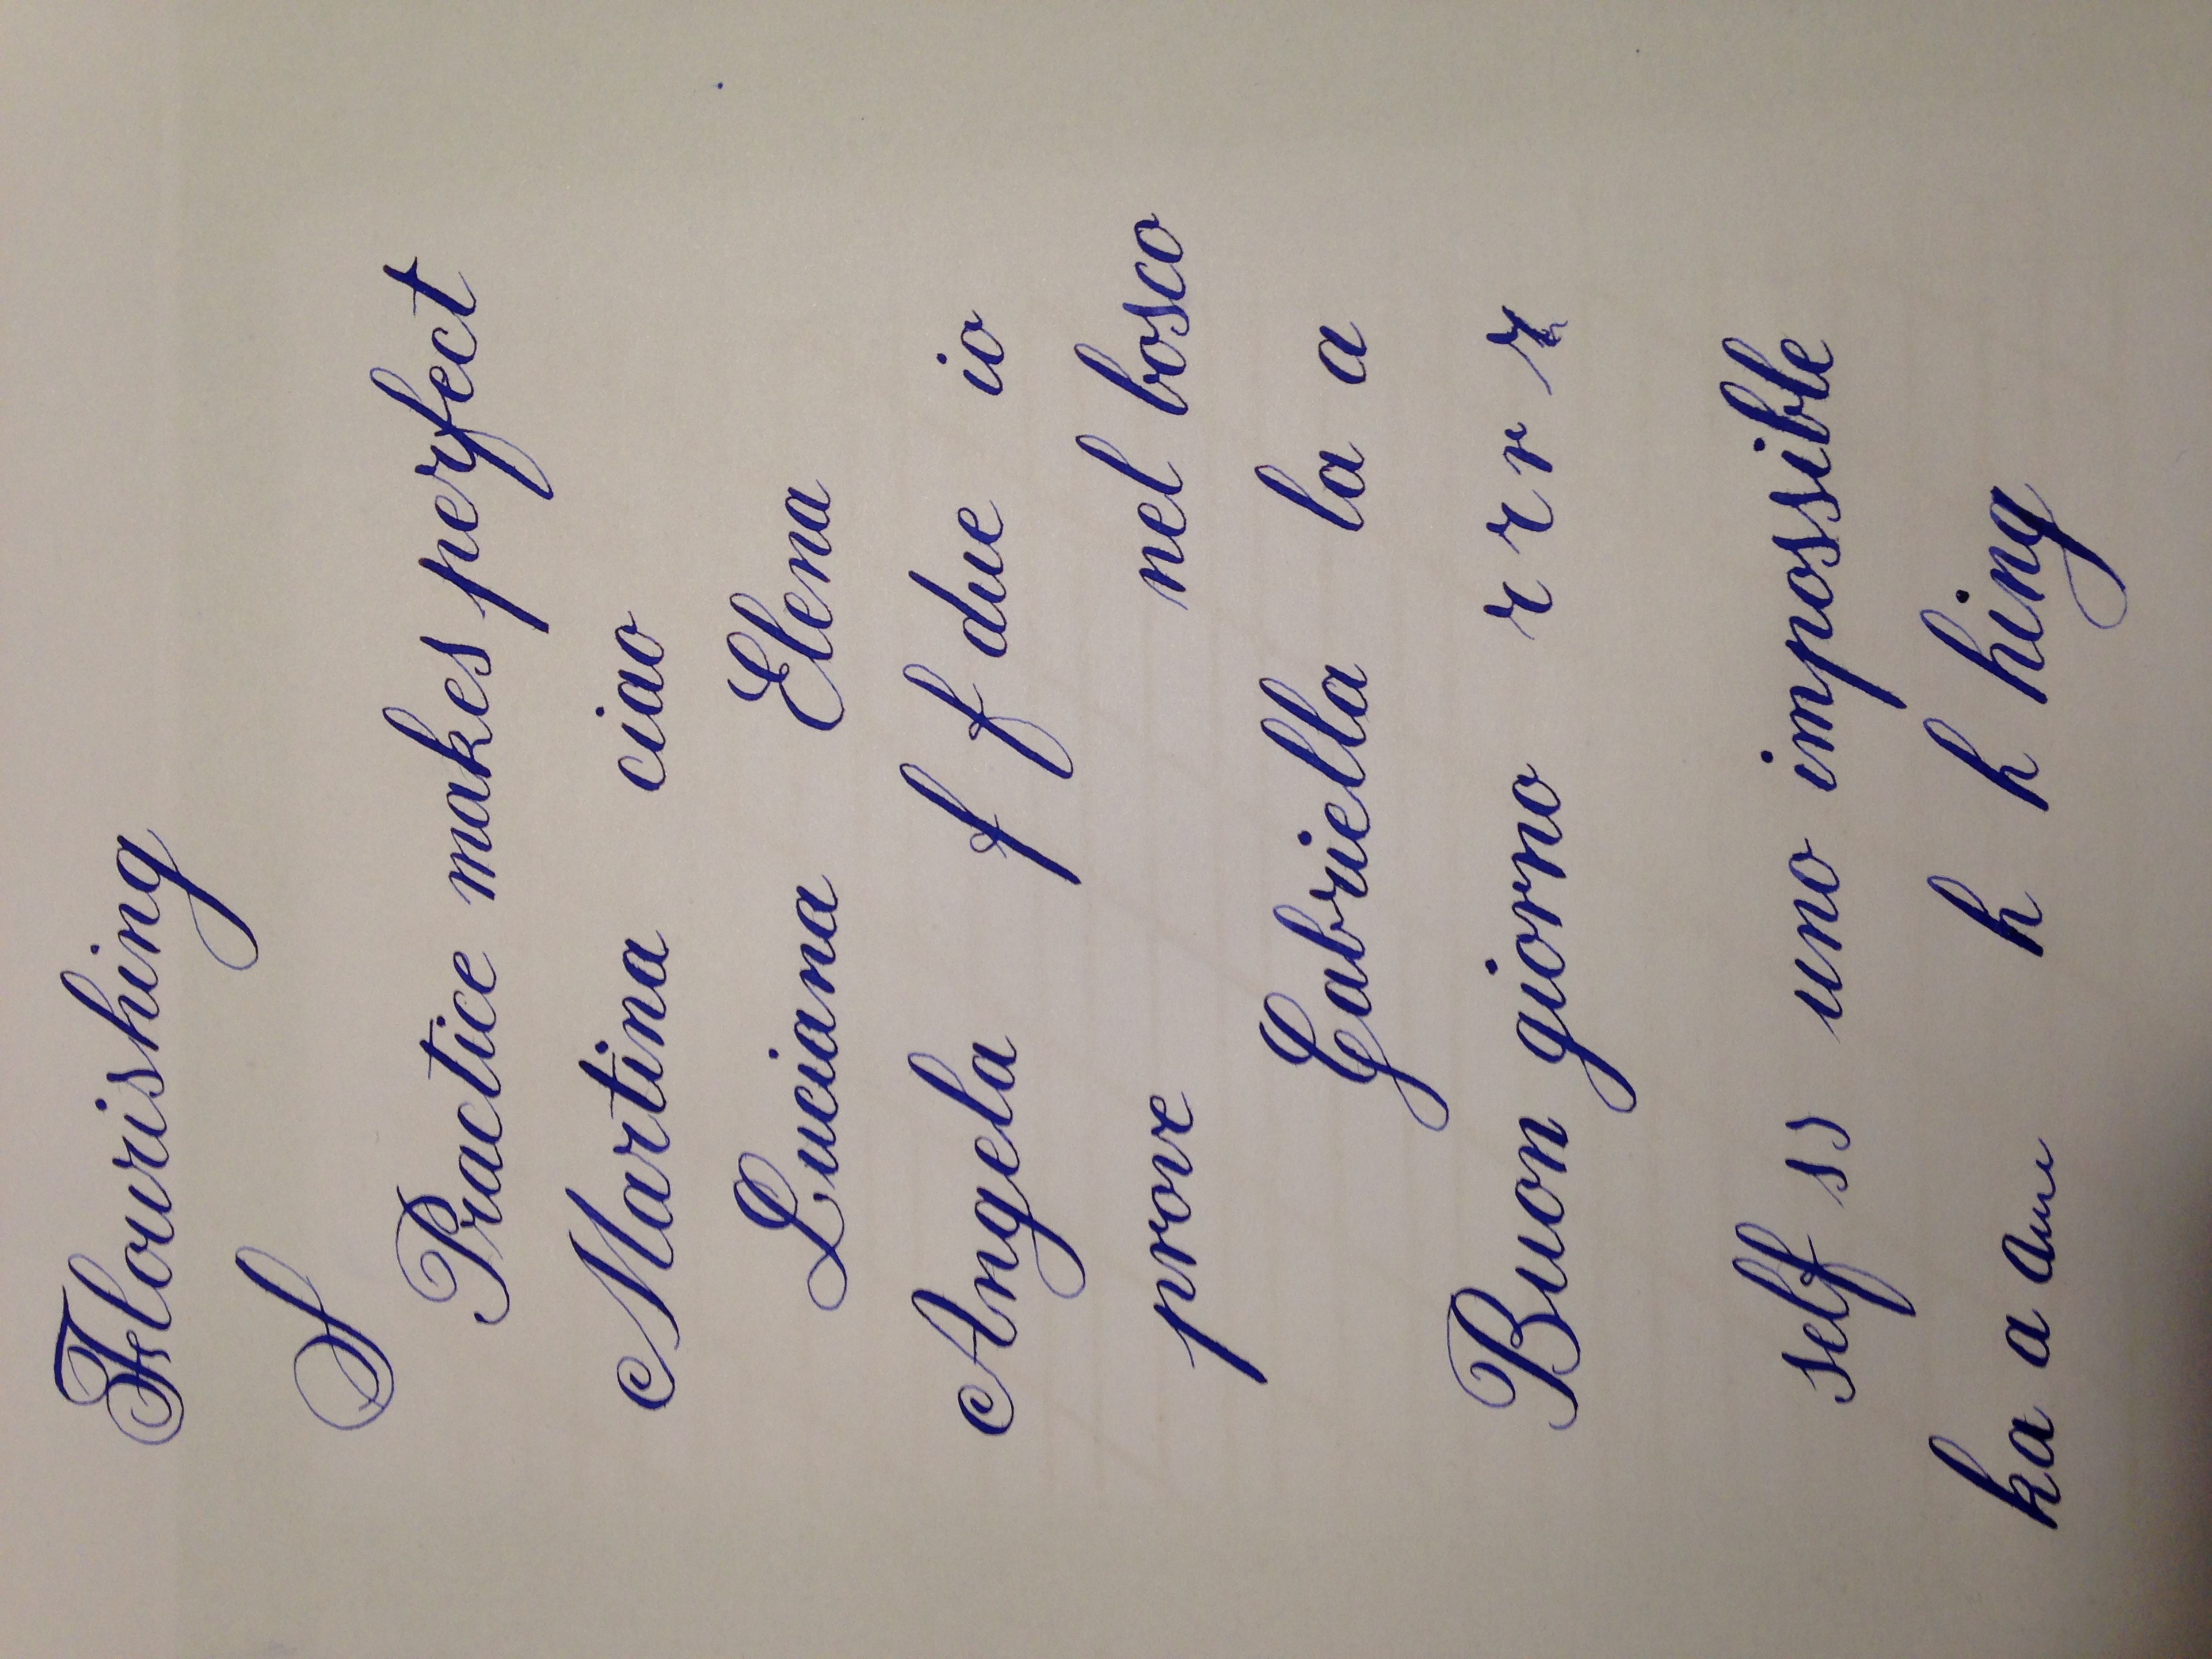 Flourishing
S
Practice makes perfect
Martina ciao
Luciana Elena
Angela f f due io
prove nel bosco
Gabriella la a
Buon giorno r r r r
self ss uno impossible
ka a h h hing